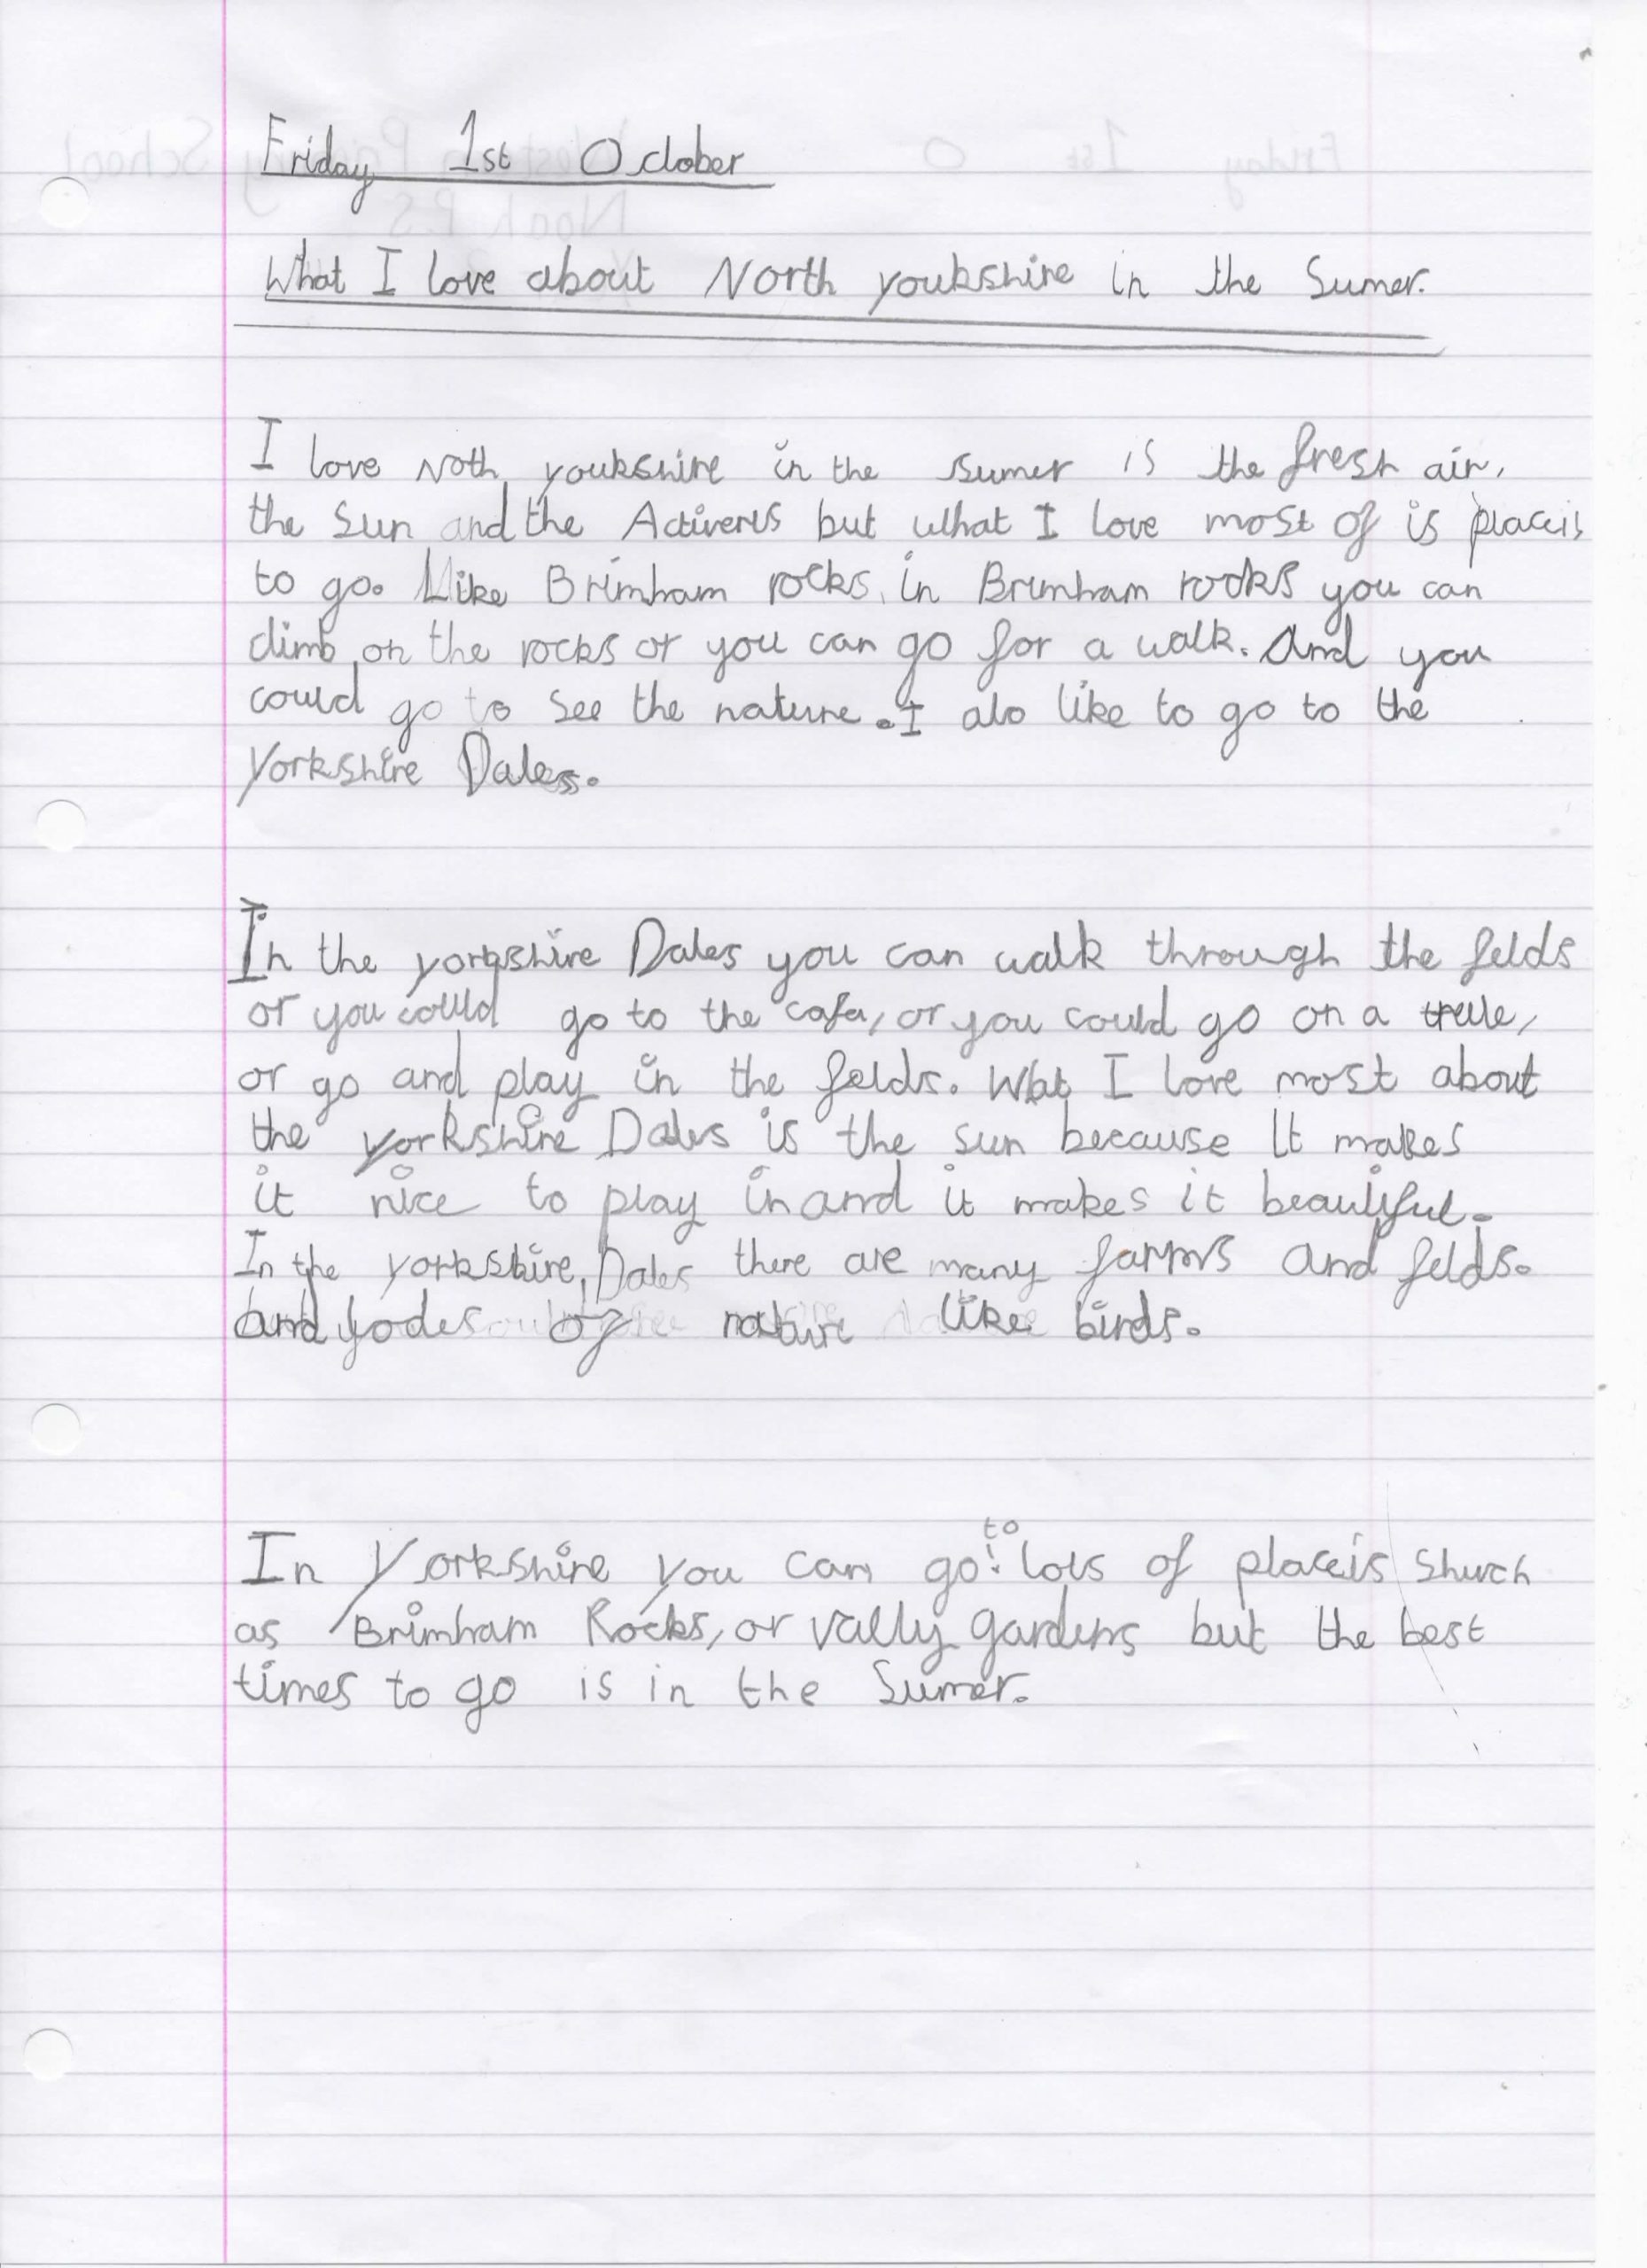 Friday 1st October
What I love about North youkshire in the Sumer.
I love Noth youkshire in the sumer is the fresh air,
the sun and the Activerts but what I love most of is placeis
to go. Like Brimham rocks, in Brimham rocks you can
climb on the rocks or you can go for a walk. And you
could go to see the nature. I also like to go to the
Yorkshire Dales.
In the yorkshire Dales you can walk through the felds
or you could go to the cafa, or you could go on a
or go and play in the felds. What I love most about
the yorkshire Dales is the sun because It makes
it nice to play in and it makes it beautiful.
In the yorkshire, Dales there are many farms and felds.
and lodes of nature like birds.
In Yorkshire you can go to lots of placeis shuch
as Brimham Rocks, or vally gardens but the best
times to go is in the Sumer.